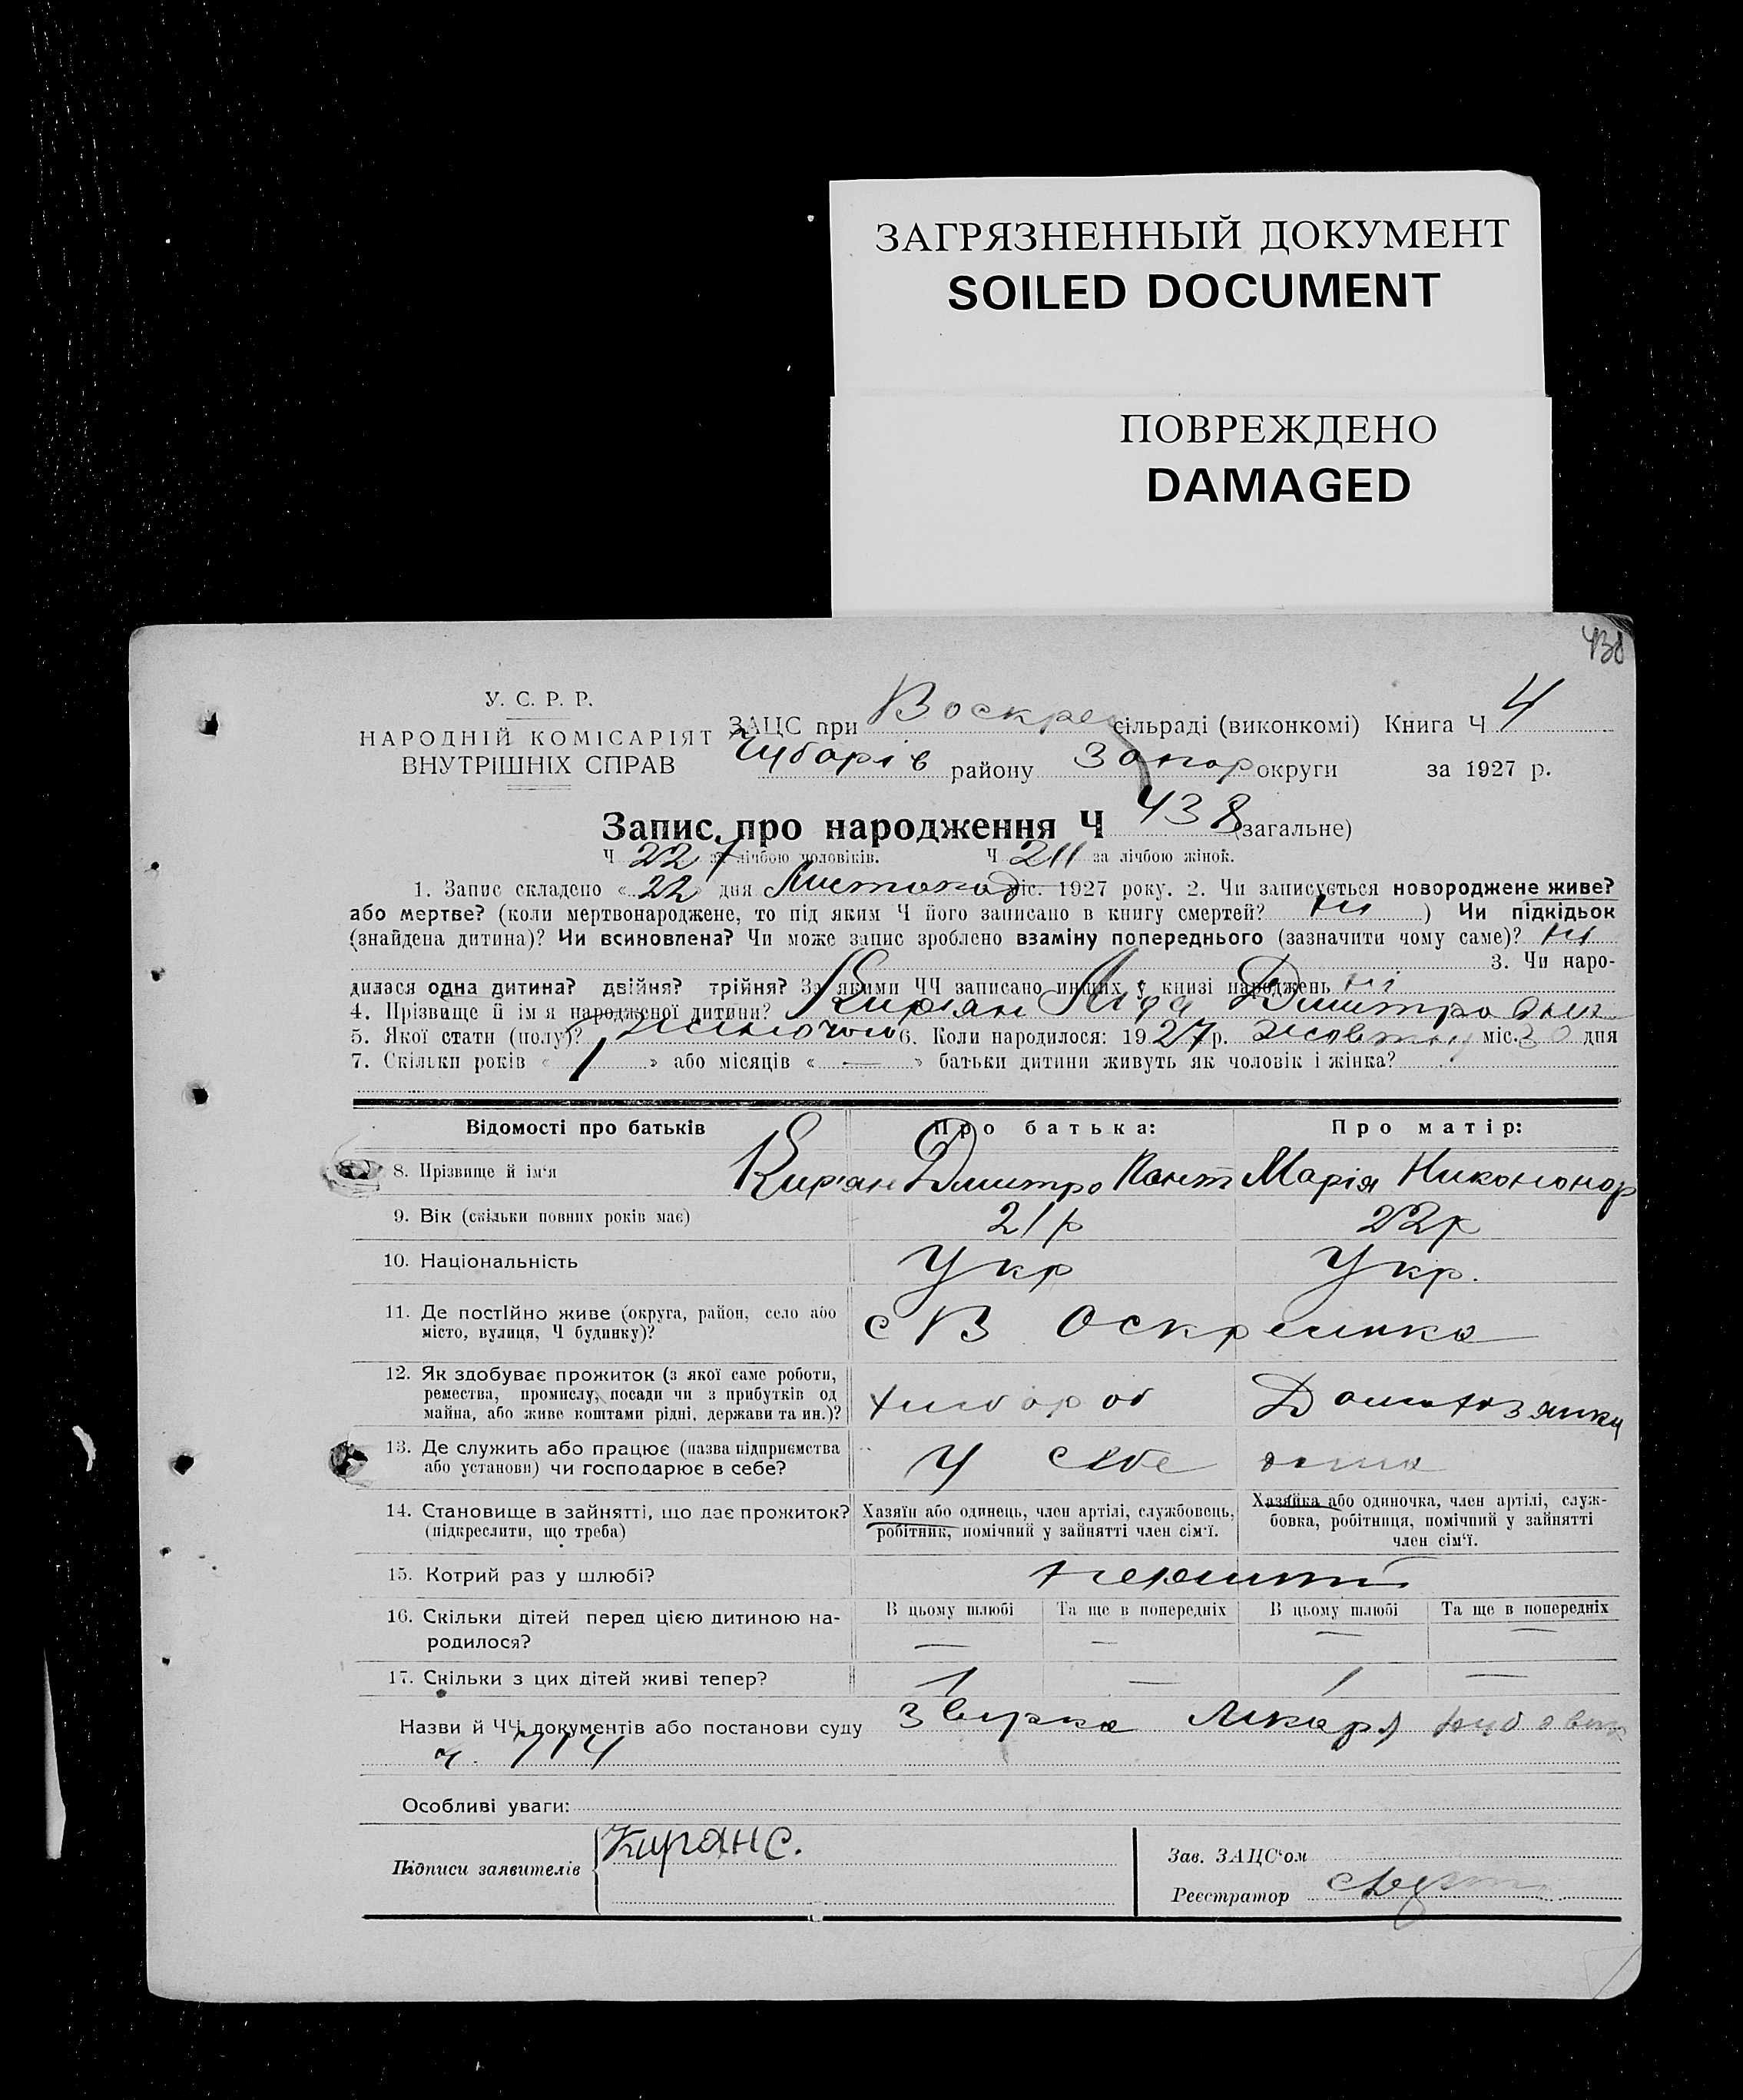 ЗАГРЯЗНЕННЫЙ ДОКУМЕНТ
SOILED DOCUMENT
ПОВРЕЖДЕНО
DAMAGED
438
У. С. Р. Р.
НАРОДНІЙ КОМІСАРІЯТ
ВНУТРІШНІХ СПРАВ
ЗАЦС при Воскрес сільраді (виконкомі) Книга Ч 4
Чубарів району Запор округи за 1927 р.
Запис про народження Ч 438 (загальне)
Ч 227 за лічбою чоловіків. Ч 211 за лічбою жінок.
1. Запис складено « 22 » дня Листопад міс. 1927 року. 2. Чи записується новороджене живе?
або мертве? (коли мертвонароджене, то під яким Ч його записано в книгу смертей? ні ) Чи підкідьок
(знайдена дитина)? Чи всиновлена? Чи може запис зроблено взаміну попереднього (зазначити чому саме)? ні
3. Чи наро-
дилася одна дитина? двійня? трійня? За якими ЧЧ записано инших у книзі народжень ні
4. Прізвище й ім'я народженої дитини? Кирʼян Ліда Дмитро
5. Якої стати (полу)? жіночого 6. Коли народилося: 1927 р. жовтня міс. 30 дня
7. Скільки років « 1 » або місяців « — » батьки дитини живуть як чоловік і жінка?
Відомості про батьків Про батька: Про матір:
8. Прізвище й ім'я Кирʼян Дмитро Конт Марія Никононор
9. Вік (скільки повних років має) 21 р 22 р
10. Національність Укр Укр.
11. Де постійно живе (округа, район, село або
місто, вулиця, Ч будинку)? с Воскресинка
12. Як здобуває прожиток (з якої саме роботи,
ремества, промислу, посади чи з прибутків од
майна, або живе коштами рідні, держави та ин.)? хлібороб
13. Де служить або працює (назва підприємства
або установи) чи господарює в себе? У себе дома
14. Становище в зайнятті, що дає прожиток?
(підкреслити, що треба)
Хазяїн або одинець, член артілі, службовець,
робітник, помічний у зайнятті член сім'ї.
Хазяйка або одиночка, член артілі, служ-
бовка, робітниця, помічний у зайнятті
член сім'ї.
15. Котрий раз у шлюбі? перший
В цьому шлюбі Та ще в попередніх В цьому шлюбі Та ще в попередніх
16. Скільки дітей перед цією дитиною на-
родилося? — — — —
17. Скільки з цих дітей живі тепер? 1 — 1 —
Назви й ЧЧ документів або постанови суду Звірка лікаря
ч. 714
Особливі уваги:
Підписи заявителів Киранс.
Зав. ЗАЦС'ом
Реєстратор